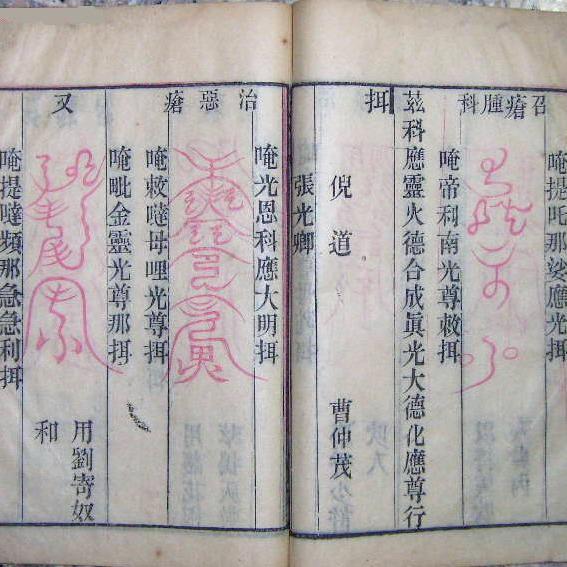 唵提吒那娑應光揖
召瘡腫科
唵帝利南光尊敕揖
茲科應靈火德合成眞光大德化應尊行
揖
倪道 曹仲茂
張光卿
唵光恩科應大明揖
治惡瘡
唵敕噠母哩光尊揖
唵毗金靈光尊那揖
又
用劉寄奴
和
唵提噠頻那急急利揖